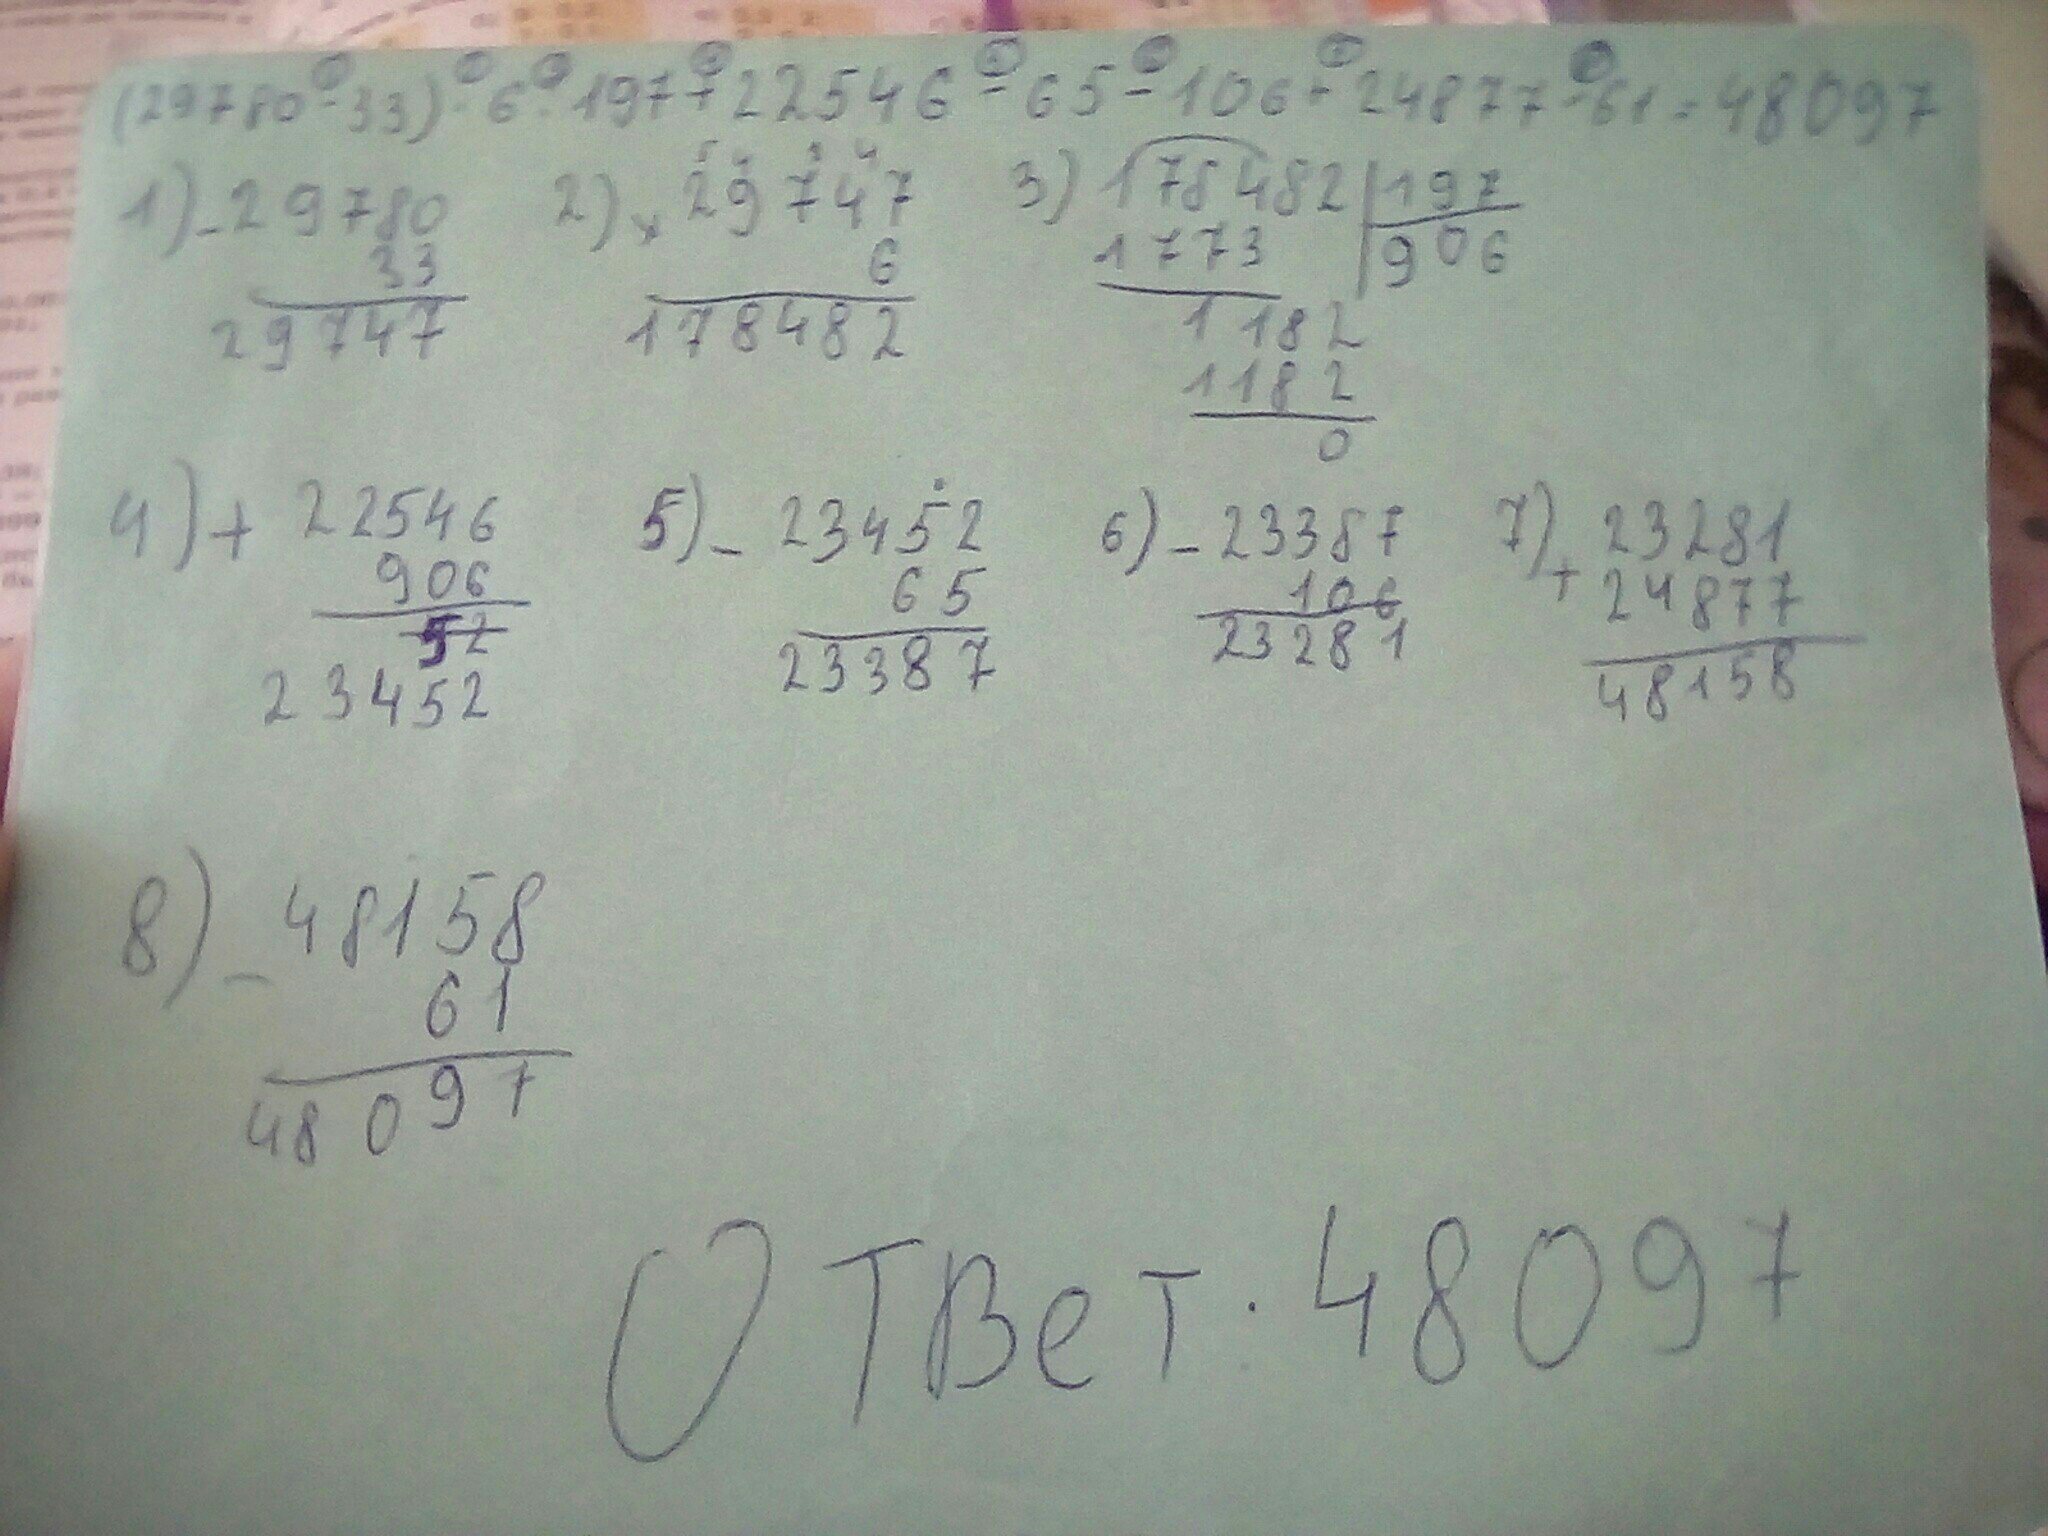 (29780-33)·6:197+22546-65-106+24877-61=48097
1) - 29780 2) x 29747 3) 178482 | 197
33 6 1773 906
29747 178482 1182
1182
0
4) + 22546 5) - 23452 6) - 23387 7) + 23281
906 65 106 24877
52 23387 23281 48158
23452
8) - 48158
61
48097
Ответ. 48097